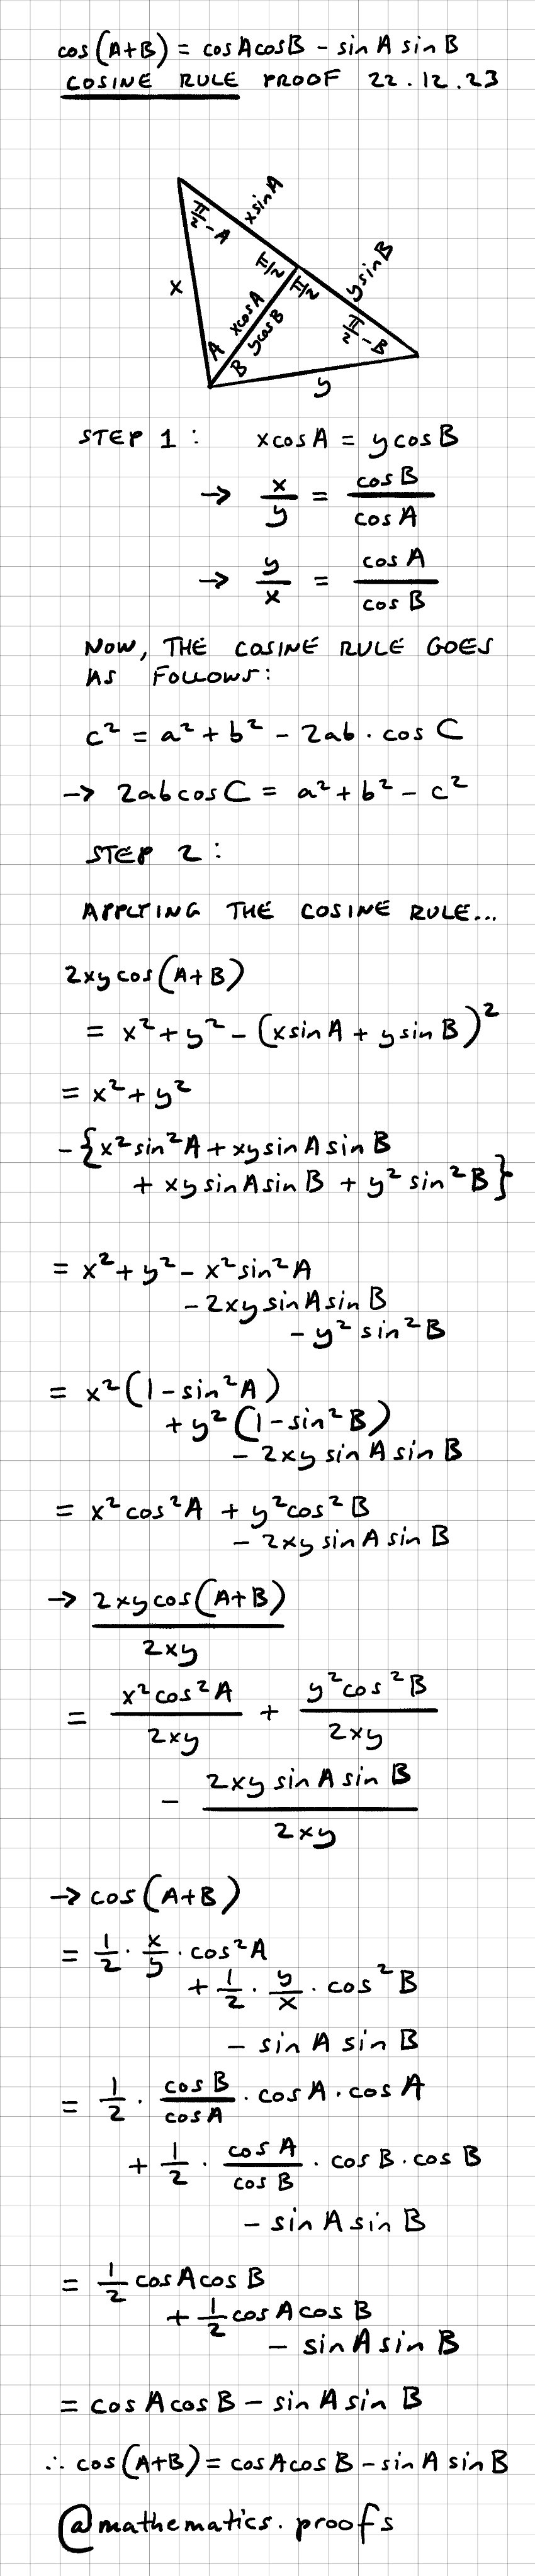 cos(A+B) = cosAcosB - sinA sinB
COSINE RULE PROOF 22.12.23
xsinA
π/2 - A
π/2
π/2
ysinB
x
xcosA
ycosB
π/2 - B
A
B
y
STEP 1: xcosA = ycosB
→ x/y = cosB/cosA
→ y/x = cosA/cosB
NOW, THE COSINE RULE GOES
AS FOLLOWS:
c² = a² + b² - 2ab · cosC
→ 2abcosC = a² + b² - c²
STEP 2:
APPLYING THE COSINE RULE...
2xycos(A+B)
= x² + y² - (xsinA + ysinB)²
= x² + y²
- {x²sin²A + xysinAsinB
+ xysinAsinB + y²sin²B}
= x² + y² - x²sin²A
- 2xysinAsinB
- y²sin²B
= x²(1 - sin²A)
+ y²(1 - sin²B)
- 2xysinAsinB
= x²cos²A + y²cos²B
- 2xysinAsinB
→ 2xycos(A+B)/2xy
= x²cos²A/2xy + y²cos²B/2xy
- 2xysinAsinB/2xy
→ cos(A+B)
= 1/2 · x/y · cos²A
+ 1/2 · y/x · cos²B
- sinAsinB
= 1/2 · cosB/cosA · cosA · cosA
+ 1/2 · cosA/cosB · cosB · cosB
- sinAsinB
= 1/2 cosAcosB
+ 1/2 cosAcosB
- sinAsinB
= cosAcosB - sinAsinB
∴ cos(A+B) = cosAcosB - sinAsinB
@mathematics.proofs